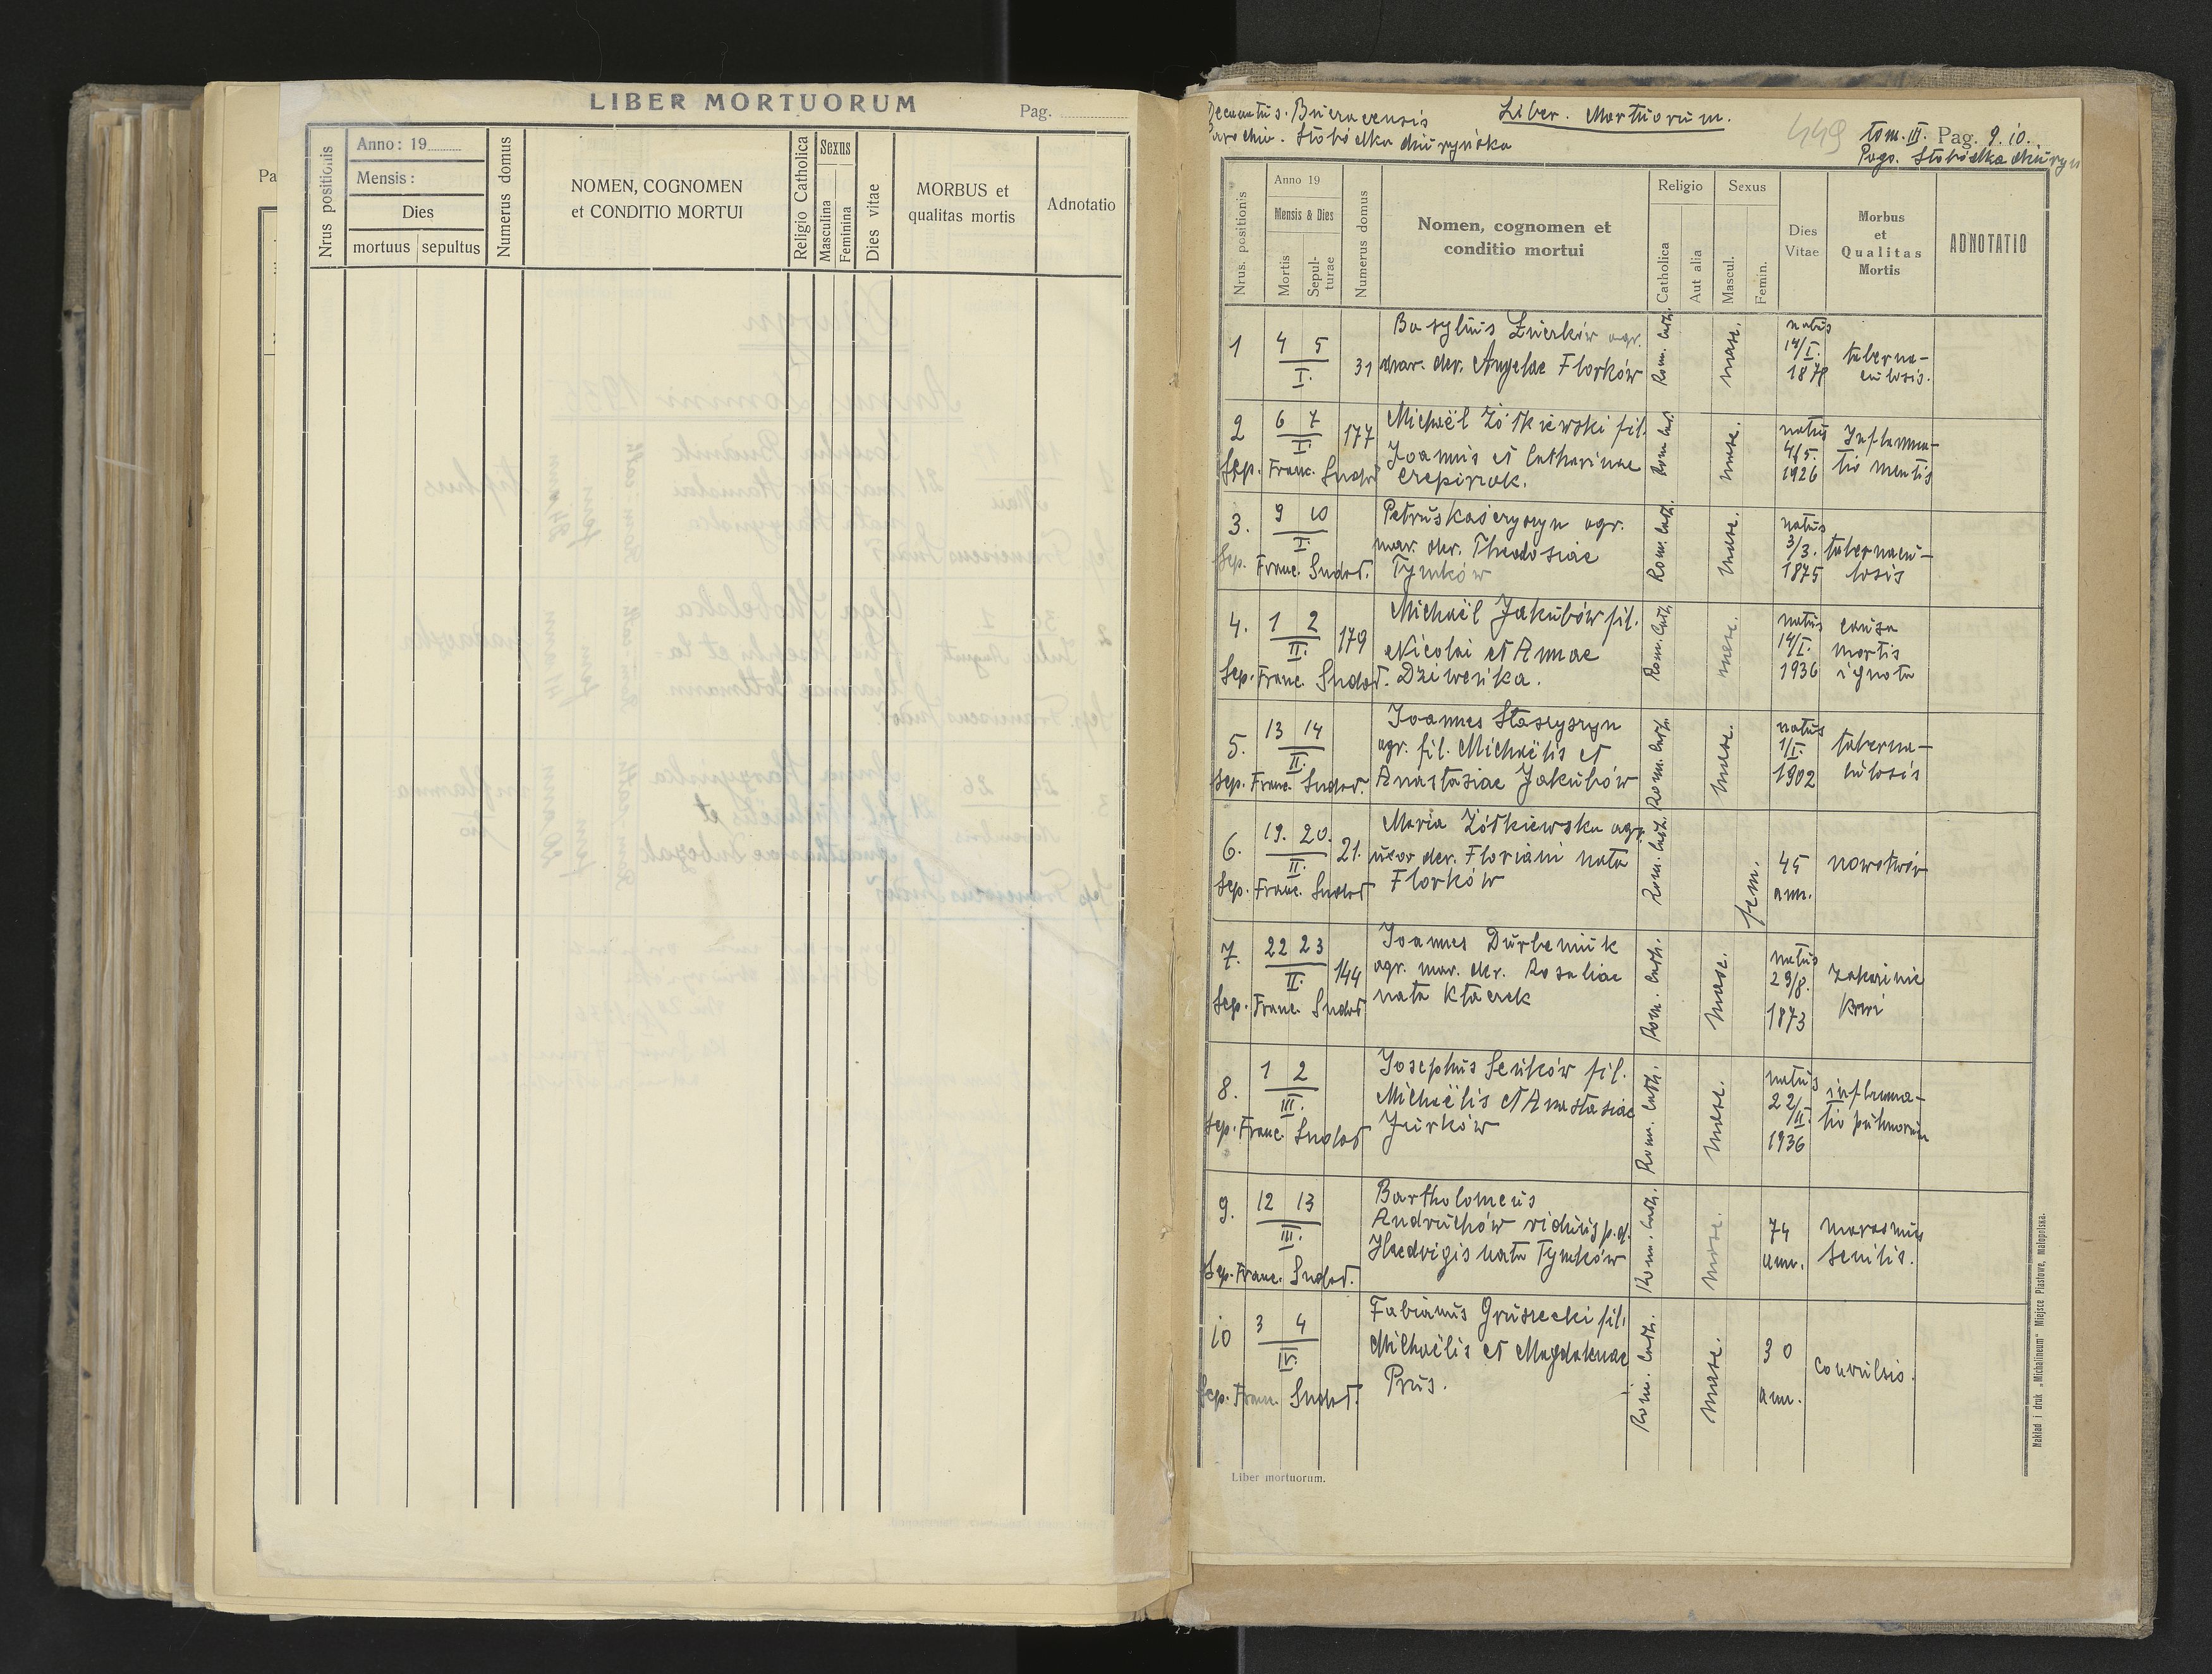 LIBER MORTUORUM
Pag.
Pa
Nrus positionis
Anno: 19
Mensis:
Dies
mortuus sepultus
Numerus domus
NOMEN, COGNOMEN
et CONDITIO MORTUI
Religio Catholica
Sexus
Masculina
Feminina
Dies vitae
MORBUS et
qualitas mortis
Adnotatio
Decanatus. Buczacensis
Parochia. Słobódka dżuryńska
Liber. Mortuorum.
449
tom. III. Pag. 9. 10.
Pago. Słobódka dżuryn
Nrus. positionis
Anno 19
Mensis & Dies
Mortis
Sepul-
turae
Numerus domus
Nomen, cognomen et
conditio mortui
Religio
Catholica
Aut alia
Sexus
Mascul.
Femin.
Dies
Vitae
Morbus
et
Qualitas
Mortis
ADNOTATIO
1 4 5 I. 31
Basylius Żwierków agr.
mar. der. Angelae Florków
Rom. cath. masc.
natus
14/I.
187
taberna-
culosis.
2 6 7 I. 177
Michaël Żółkiewski fil.
Joannis et Catharinae
Czepirnak.
Sep. Franc. Sudoł
Rom. cath. masc.
natus
4/5.
1926
Inflamma-
tio mentis
3. 9 10 I.
Petrus Kaseryszyn agr.
mar. der. Theodosiae
Tymków
Sep. Franc. Sudoł.
Rom. cath. masc.
natus
3/3.
1875
tabernacu-
losis
4. 1 2 II. 179
Michaël Jakubów fil.
Nicolai et Annae
Dziweńka.
Sep. Franc. Sudoł.
Rom. cath. masc.
natus
14/I.
1936
causa
mortis
ignota
5. 13 14 II.
Joannes Staszyszyn
agr. fil. Michaëlis et
Anastasiae Jakubów
Sep. Franc. Sudoł.
Rom. cath. masc.
natus
1/I.
1902
taberna-
culosis
6. 19. 20. II. 21.
Maria Żółkiewska agr.
uxor der. Floriani nata
Florków
Sep. Franc. Sudoł
Rom. cath. fem.
45
ann.
nowotwór
7. 22 23 II. 144
Joannes Durbeniuk
agr. mar. der. Rosaliae
nata Kłaczek
Sep. Franc. Sudoł
Rom. cath. masc.
natus
29/8.
1873
zakażenie
krwi
8. 1 2 III.
Josephus Seńków fil.
Michaëlis et Anastasiae
Jurków
Sep. Franc. Sudoł
Rom. cath. masc.
natus
22/II.
1936
inflamma-
tio pulmorum
9. 12 13 III.
Bartholomeus
Andruchów viduus p. d.
Hedvigis nata Tymków
Sep. Franc. Sudoł.
Rom. cath. masc.
74
ann.
marasmus
senilis.
10 3 4 IV.
Fabianus Gruszecki fil.
Michaëlis et Magdalenae
Prus.
Sep. Franc. Sudoł.
Rom. cath. masc.
30
ann.
convulsio.
Liber mortuorum.
Nakład i druk „Michalineum" Miejsce Piastowe, Małopolska.